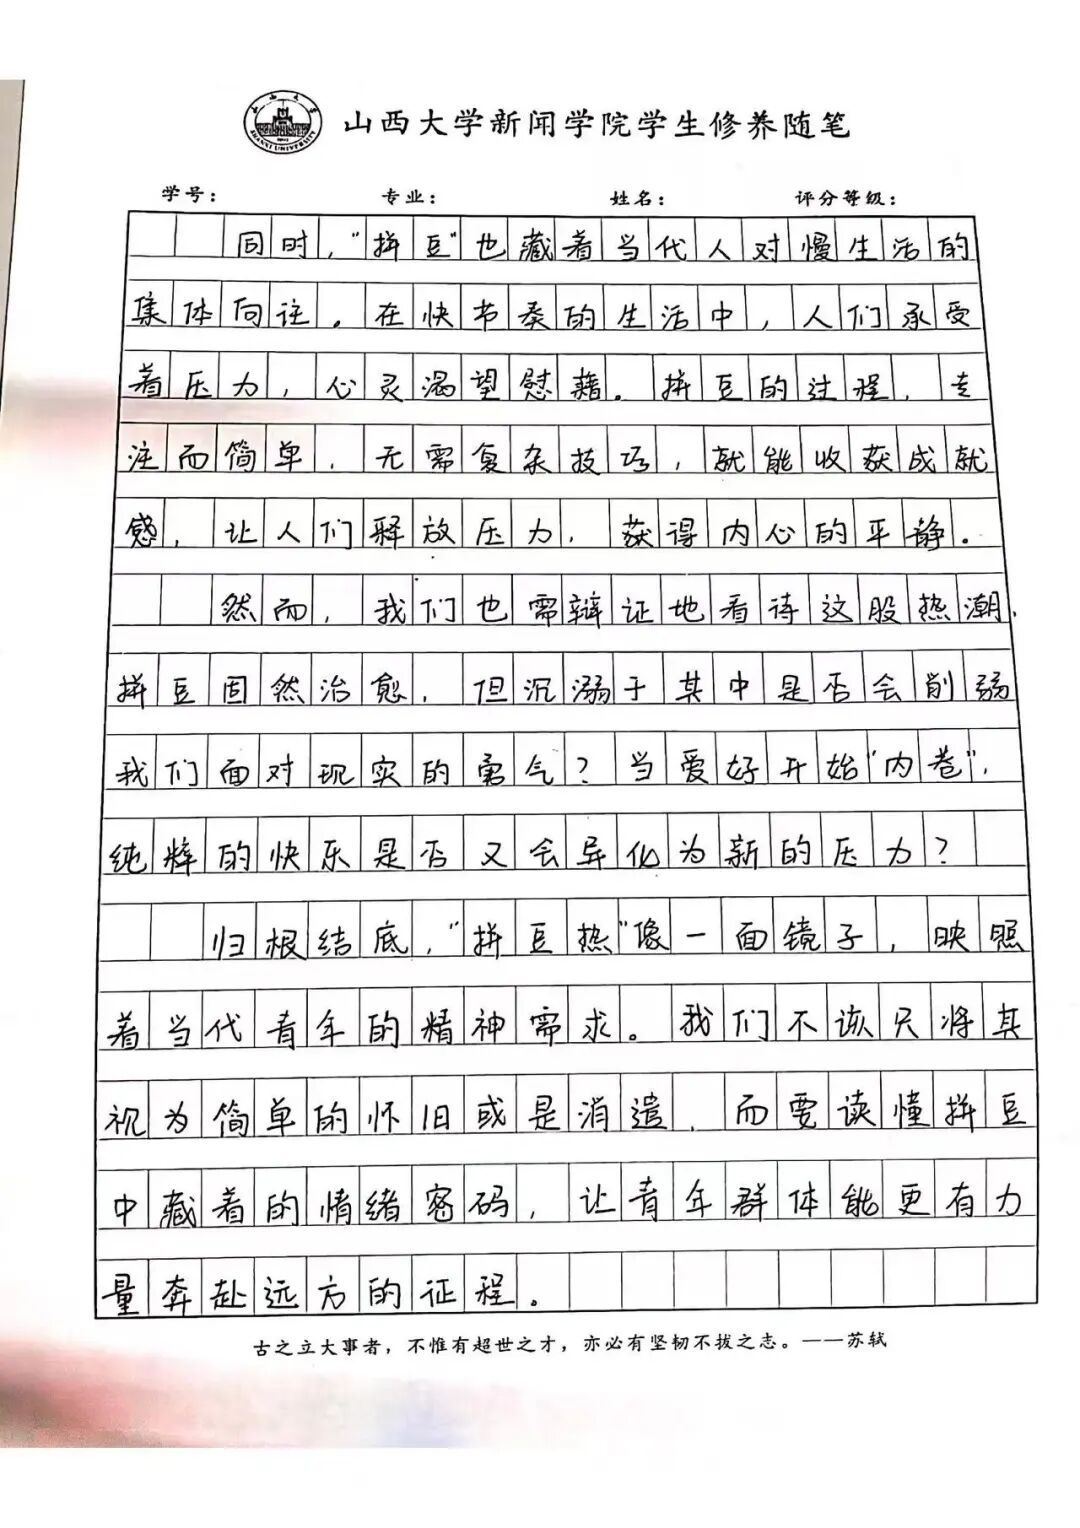 山西大学新闻学院学生修养随笔
学号： 专业： 姓名： 评分等级：
同时，“拼豆”也藏着当代人对慢生活的
集体向往。在快节奏的生活中，人们承受
着压力，心灵渴望慰藉。拼豆的过程，专
注而简单，无需复杂技巧，就能收获成就
感，让人们释放压力，获得内心的平静。
然而，我们也需辩证地看待这股热潮，
拼豆固然治愈，但沉溺于其中是否会削弱
我们面对现实的勇气？当爱好开始“内卷”，
纯粹的快乐是否又会异化为新的压力？
归根结底，“拼豆热”像一面镜子，映照
着当代青年的精神需求。我们不该只将其
视为简单的怀旧或是消遣，而要读懂拼豆
中藏着的情绪密码，让青年群体能更有力
量奔赴远方的征程。
古之立大事者，不惟有超世之才，亦必有坚韧不拔之志。——苏轼